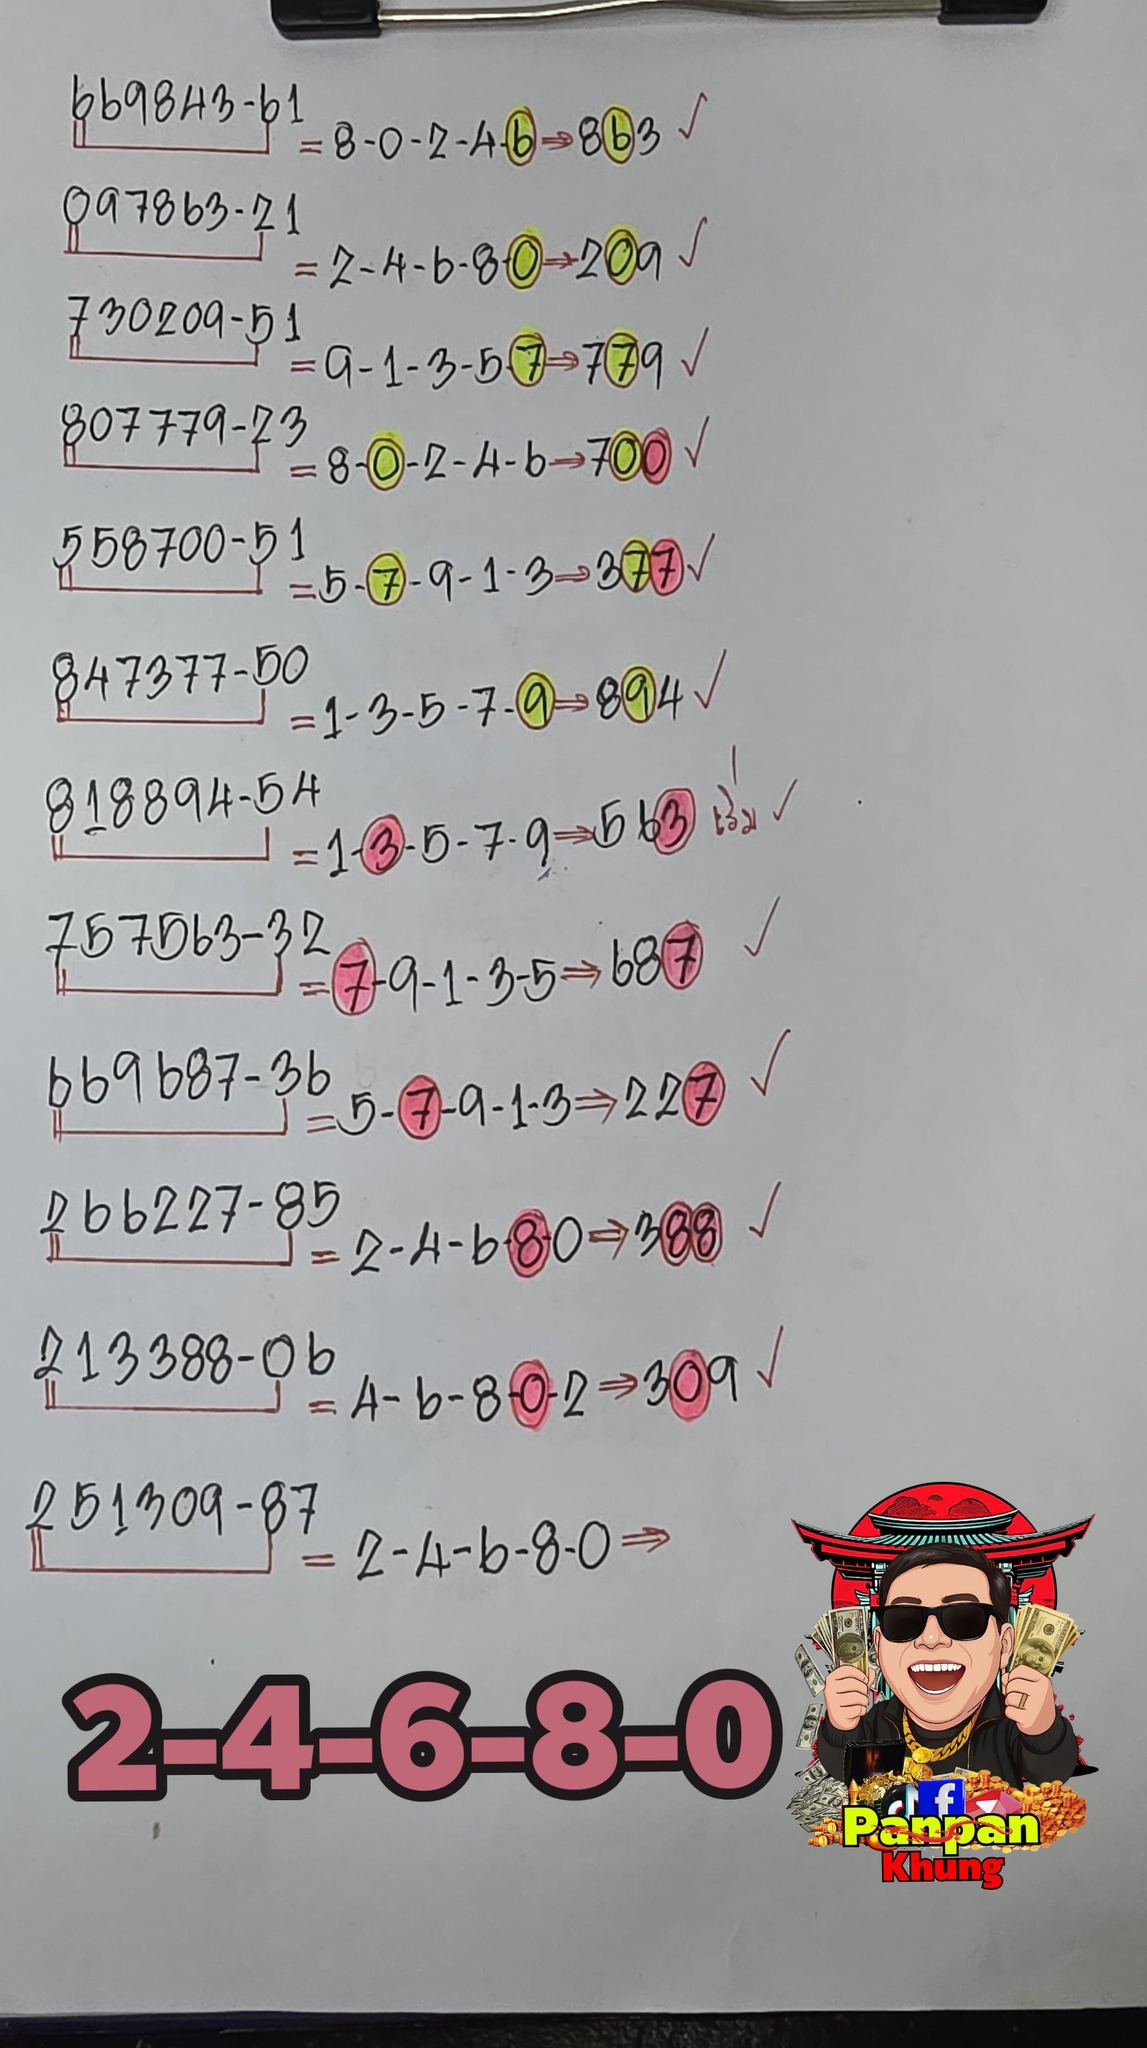 669843-61
= 8-0-2-4-6⇒863 ✓
097863-21
= 2-4-6-8-0⇒209 ✓
730209-51
= 9-1-3-5-7⇒779 ✓
807779-23
= 8-0-2-4-6⇒700 ✓
558700-51
= 5-7-9-1-3⇒377 ✓
847377-50
= 1-3-5-7-9⇒894 ✓
818894-54
= 1-3-5-7-9⇒563 ✓
757563-32
= 7-9-1-3-5⇒687 ✓
669687-36
= 5-7-9-1-3⇒227 ✓
266227-85
= 2-4-6-8-0⇒388 ✓
213388-06
= 4-6-8-0-2⇒309 ✓
251309-87
= 2-4-6-8-0⇒
2-4-6-8-0
Panpan
Khung